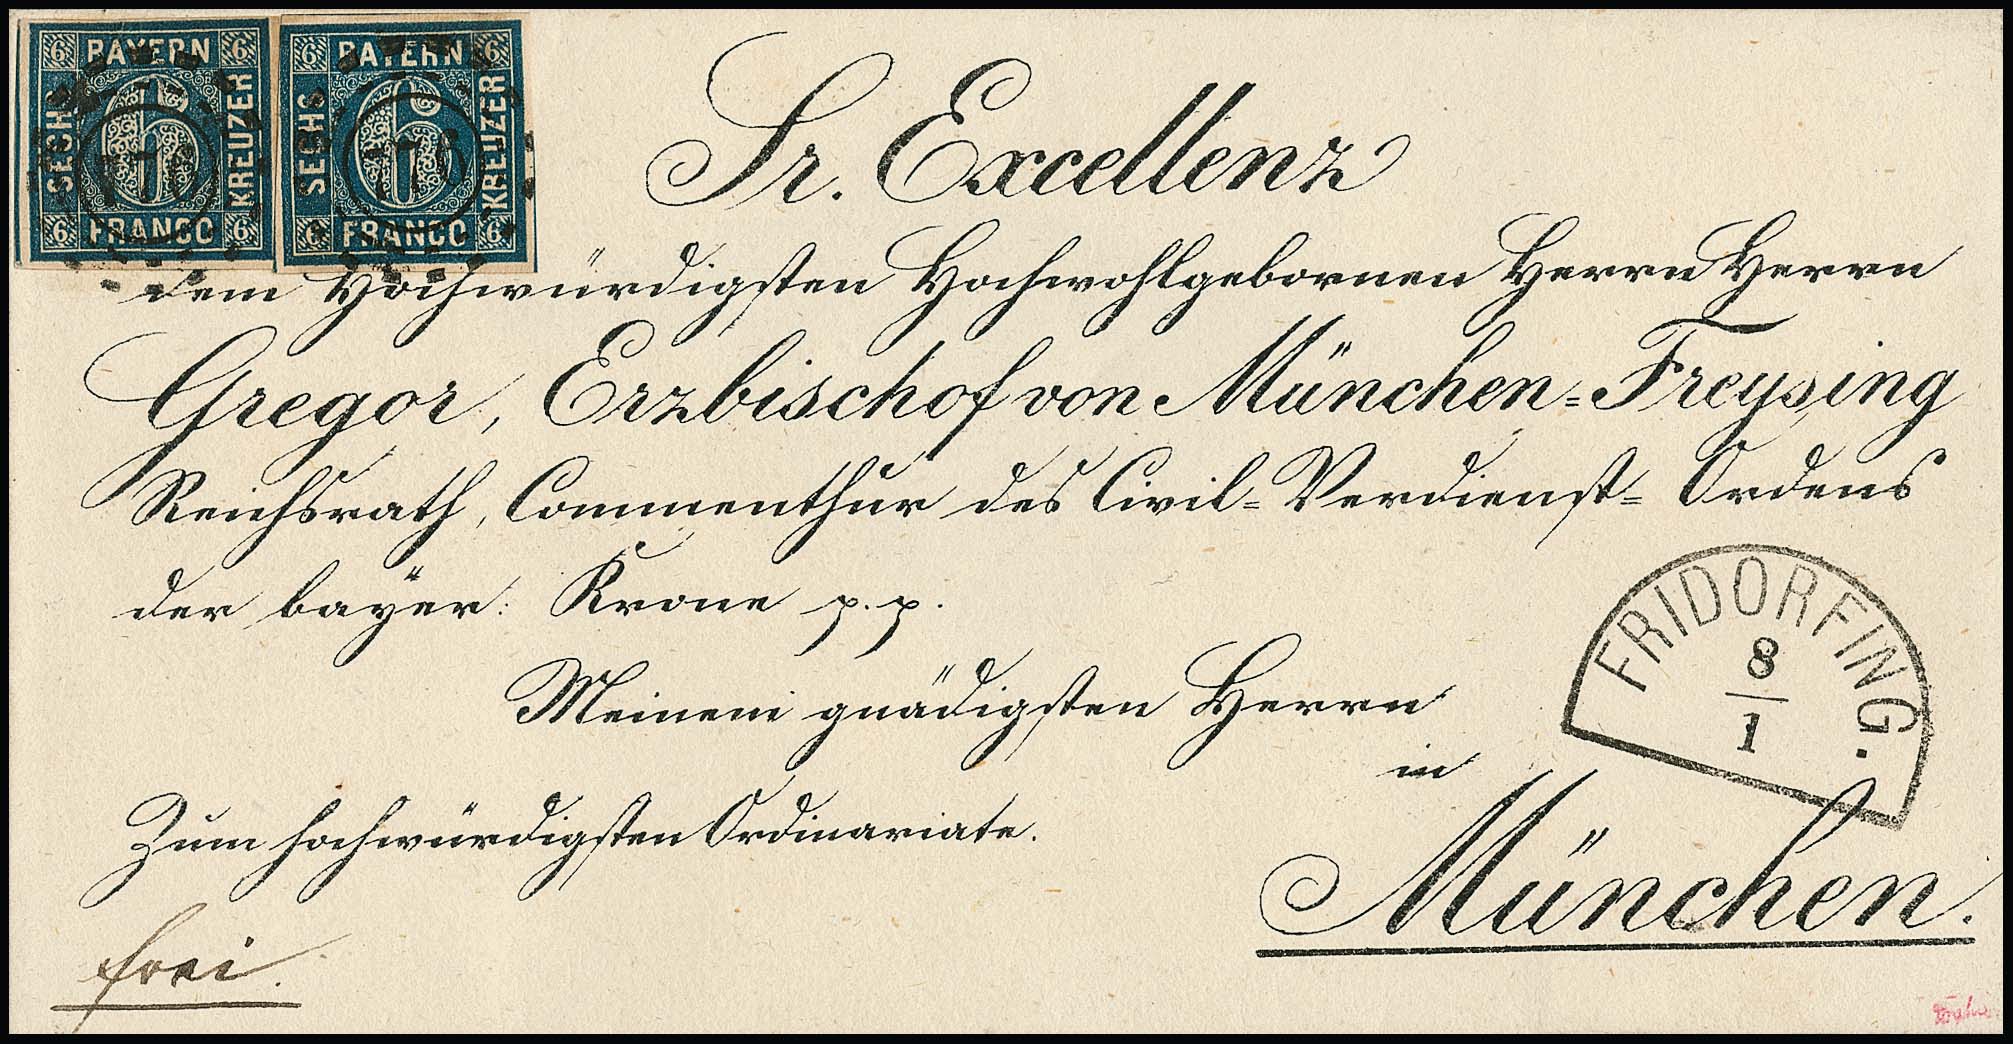 6 BAYERN 6
SECHS
6
KREUZER
6 FRANCO 6
776
6 BAYERN 6
SECHS
6
KREUZER
6 FRANCO 6
776
Sr. Excellenz
dem Hochwürdigsten Hochwohlgebornen Herrn Herrn
Gregor, Erzbischof von München=Freysing
Reichsrath, Commenthur des Civil=Verdienst=Ordens
der bayer: Krone p. p.
Meinem gnädigsten Herrn
in
München.
Zum hochwürdigsten Ordinariate.
frei.
FRIDORFING.
8
1